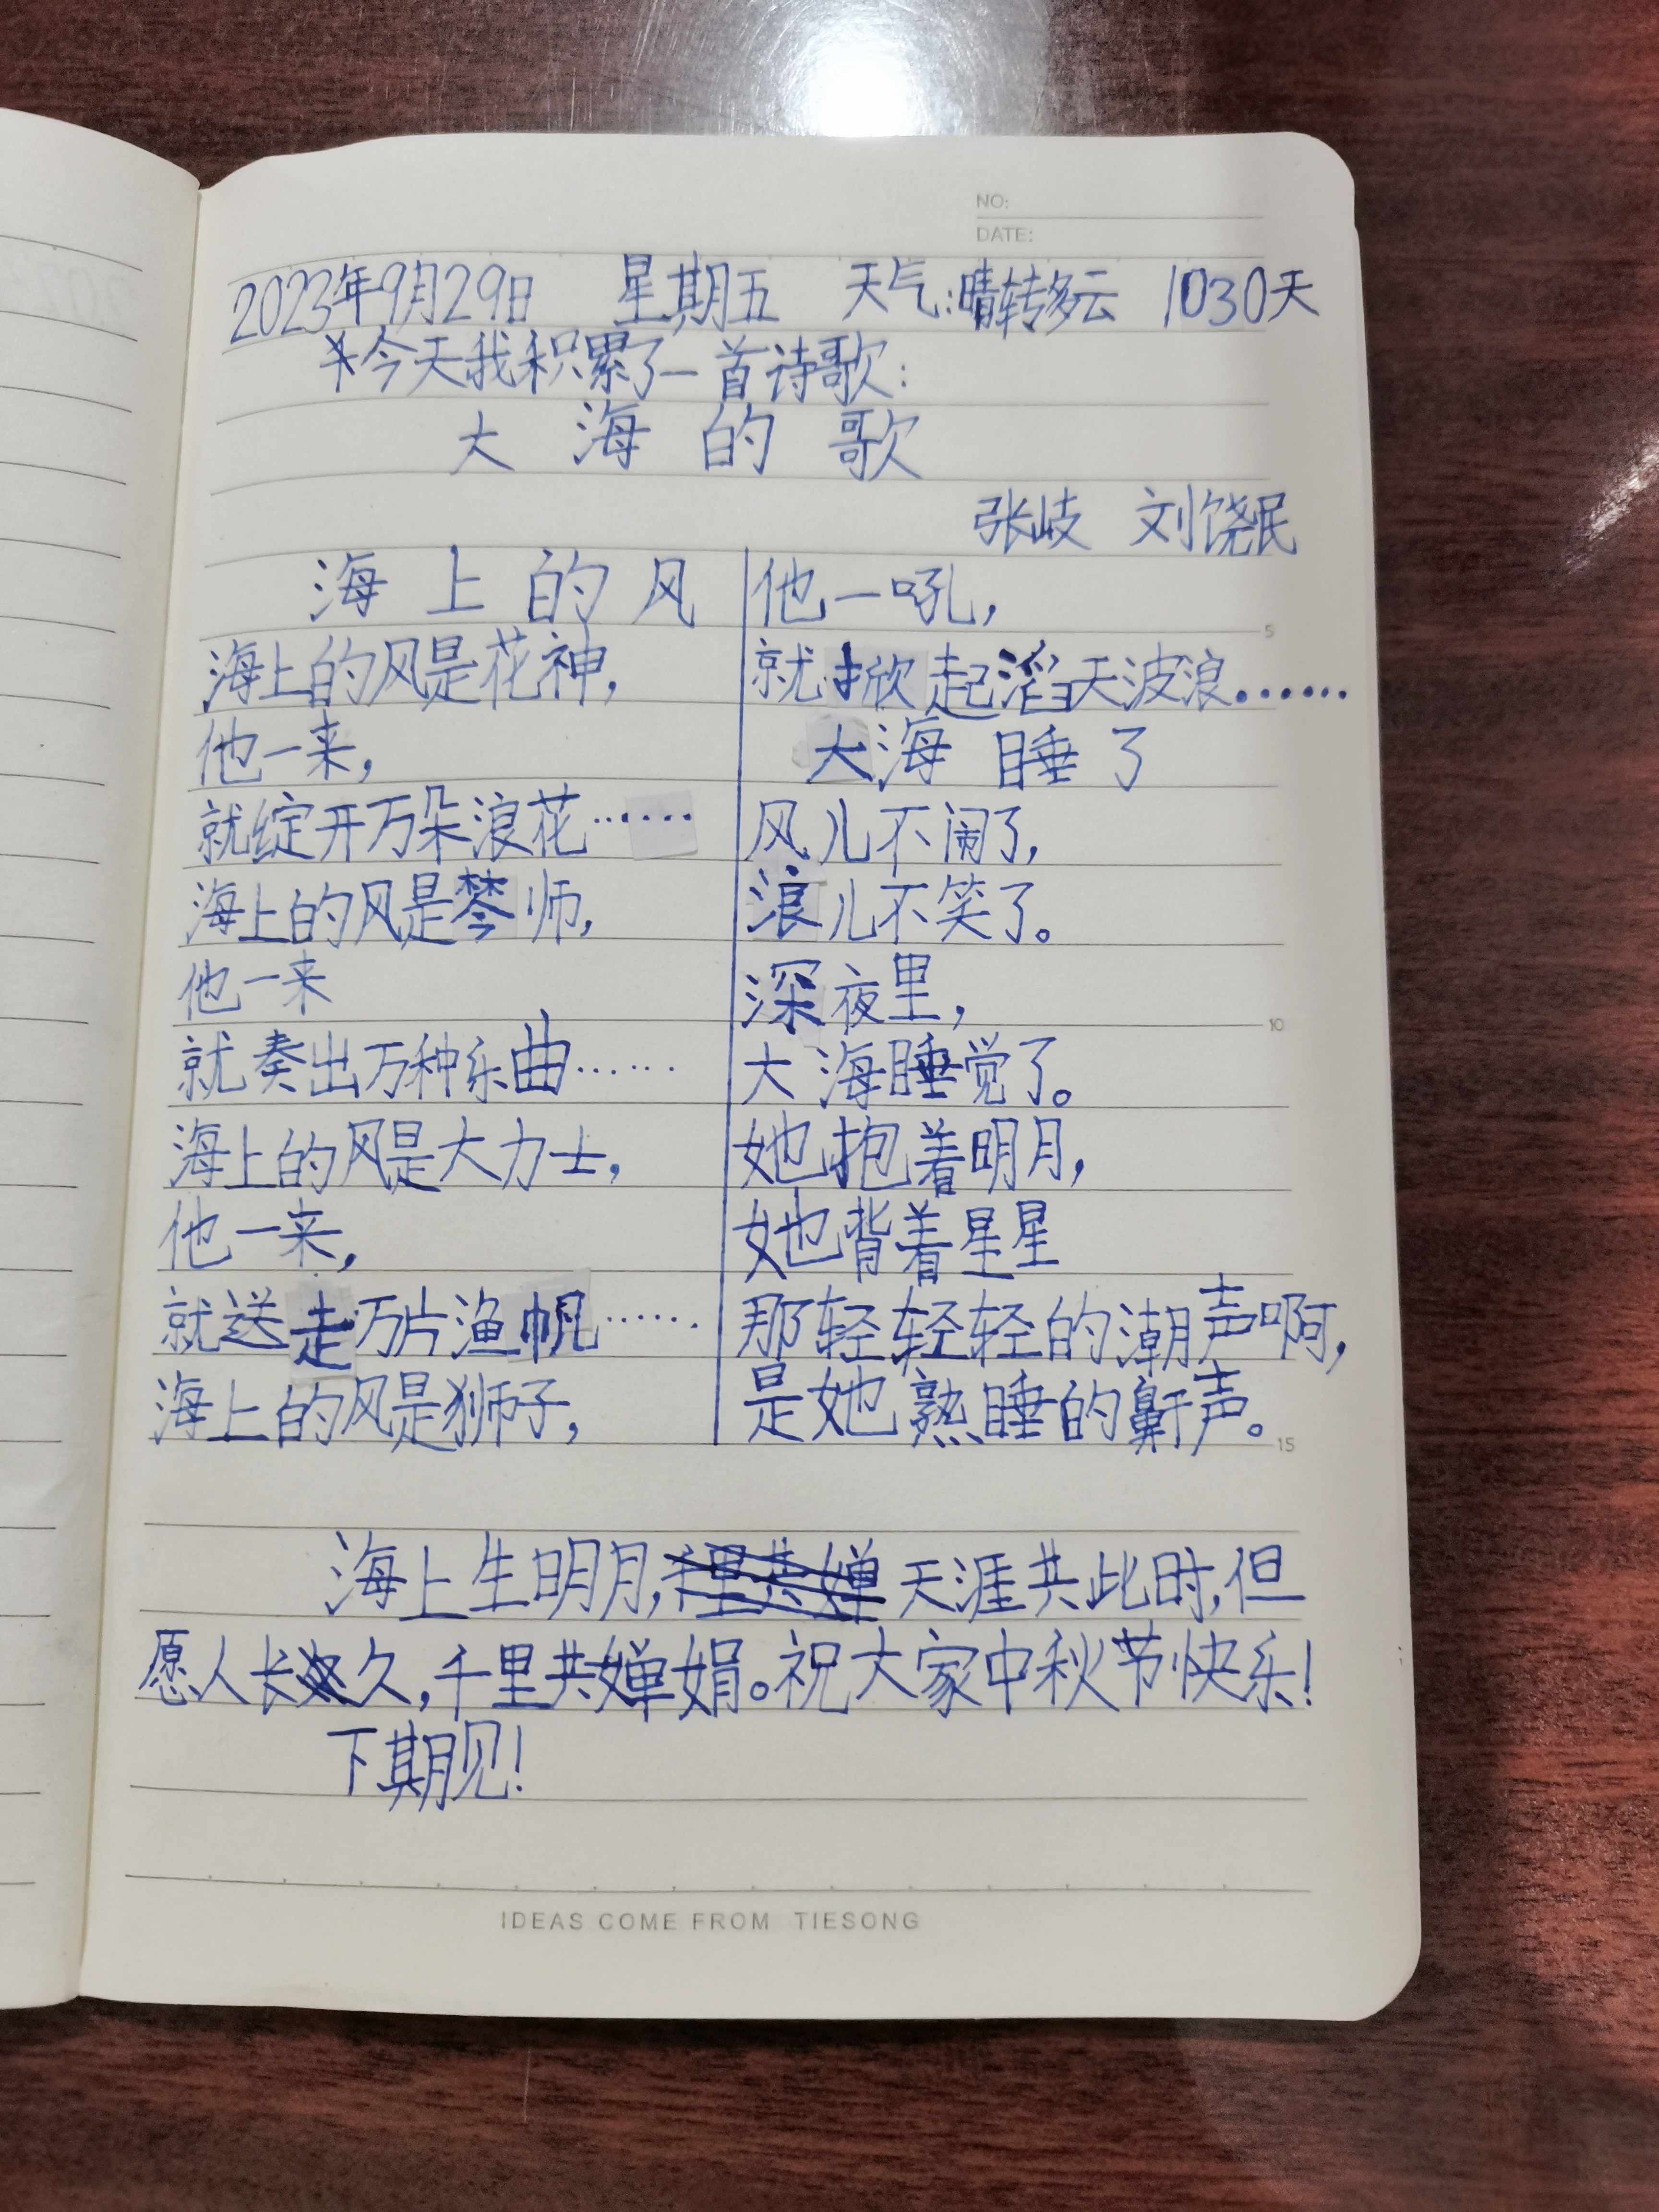 NO:
DATE:
2023年9月29日 星期五 天气:晴转多云 1030天
今天我积累了一首诗歌:
大海的歌
张岐 刘饶民
海上的风
海上的风是花神,
他一来,
就绽开万朵浪花……
海上的风是琴师,
他一来
就奏出万种乐曲……
海上的风是大力士,
他一来,
就送走万片渔帆……
海上的风是狮子,
他一吼,
就掀起滔天波浪……
大海睡了
风儿不闹了,
浪儿不笑了。
深夜里,
大海睡觉了。
她抱着明月,
她背着星星
那轻轻轻的潮声啊,
是她熟睡的鼾声。
5
10
15
海上生明月,千里共婵天涯共此时,但
愿人长久,千里共婵娟。祝大家中秋节快乐!
下期见!
IDEAS COME FROM TIESONG